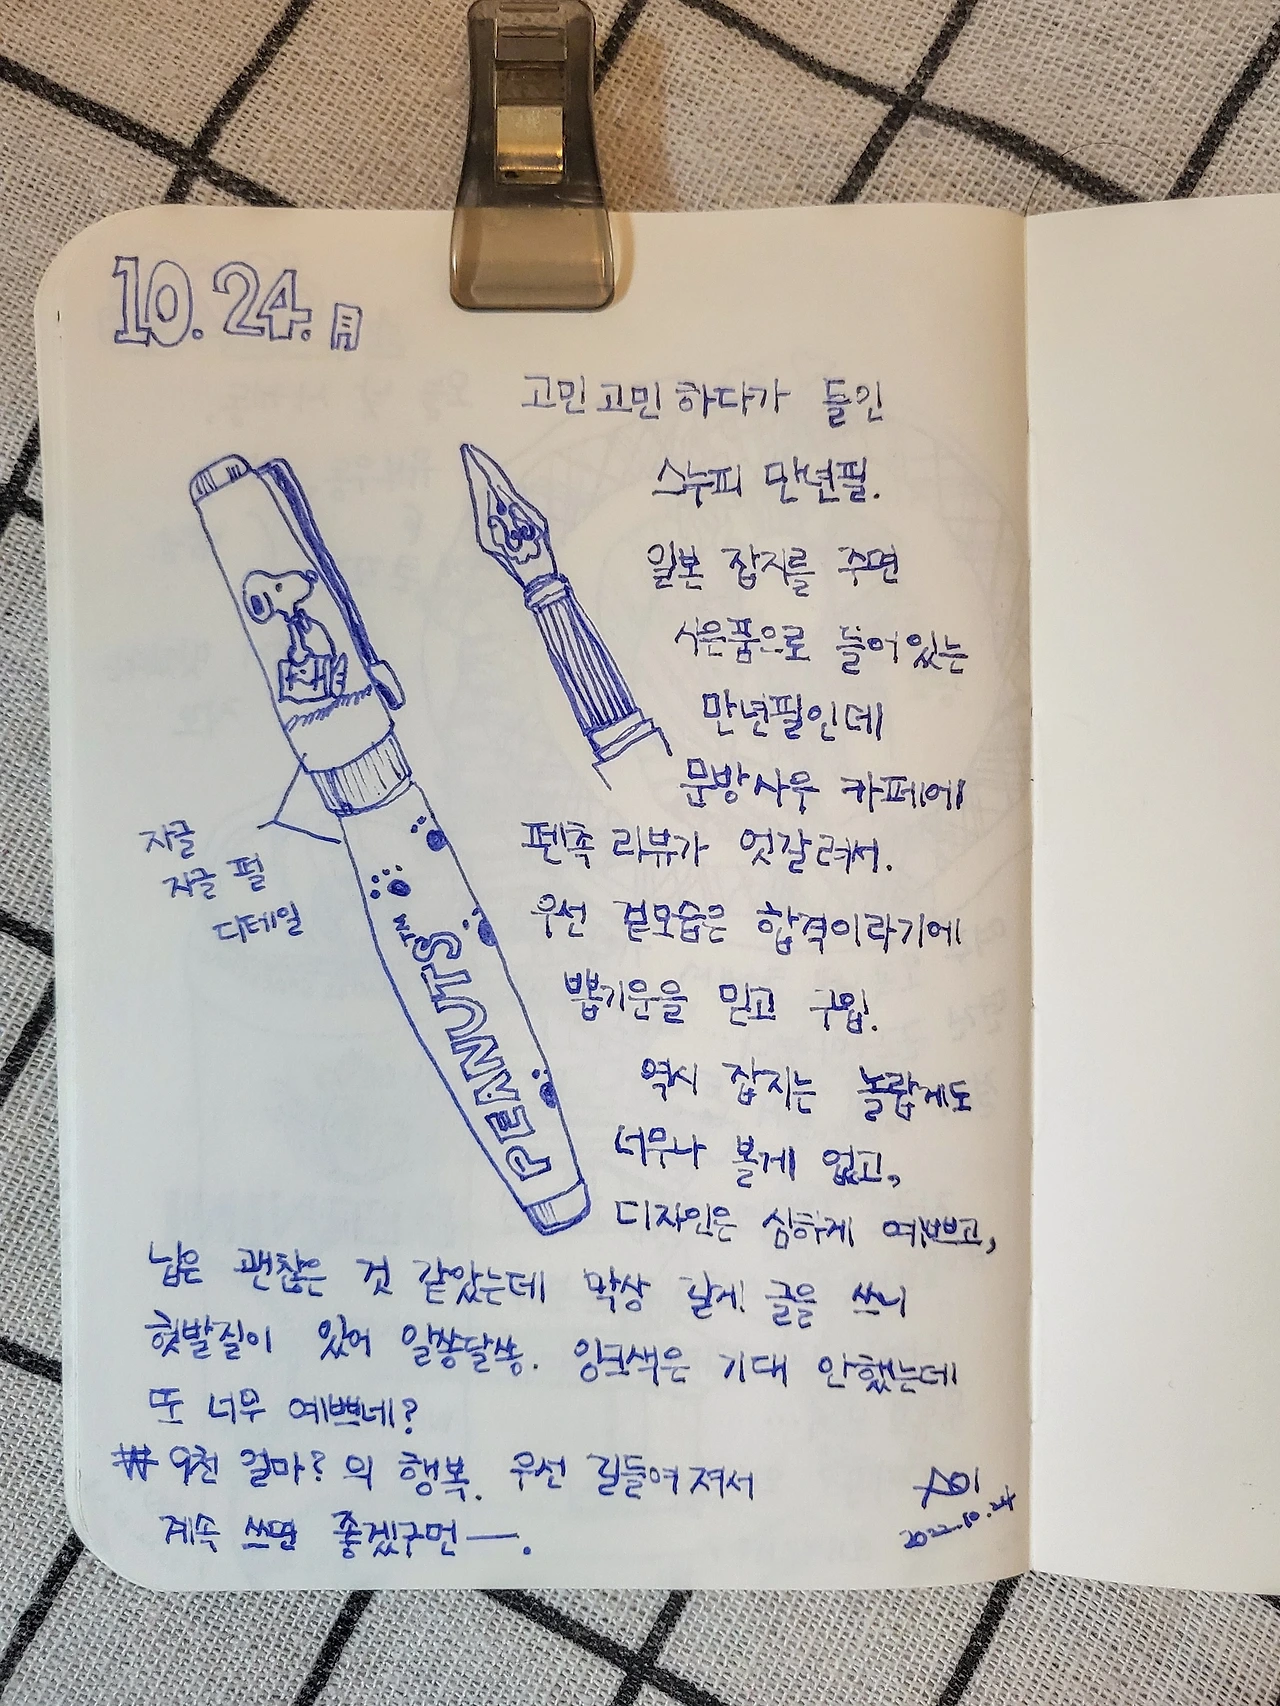 10. 24. 月
고민고민 하다가 들인
스누피 만년필.
일본 잡지를 주면
사은품으로 들어있는
만년필인데
문방사우 카페에
펜촉 리뷰가 엇갈려서.
우선 겉모습은 합격이라기에
뽑기운을 믿고 구입.
역시 잡지는 놀랍게도
너무나 볼게 없고,
디자인은 심하게 예쁘고,
닙은 괜찮은 것 같았는데 막상 날게 글을 쓰니
헛발질이 있어 알쏭달쏭. 잉크색은 기대 안했는데
또 너무 예쁘네?
₩ 9천 얼마? 의 행복. 우선 길들여져서
계속 쓰면 좋겠구먼—.
자글
자글 펄
디테일
PEANUTS™
2022.10.24